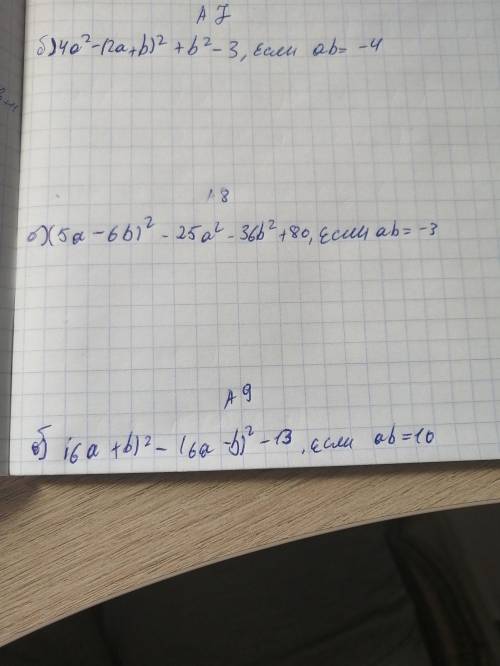 А 7
б) 4a² - (2a+b)² + b² - 3, если ab = -4
А 8
б) (5a - 6b)² - 25a² - 36b² + 80, если ab = -3
А 9
б) (6a + b)² - (6a - b)² - 13, если ab = 10